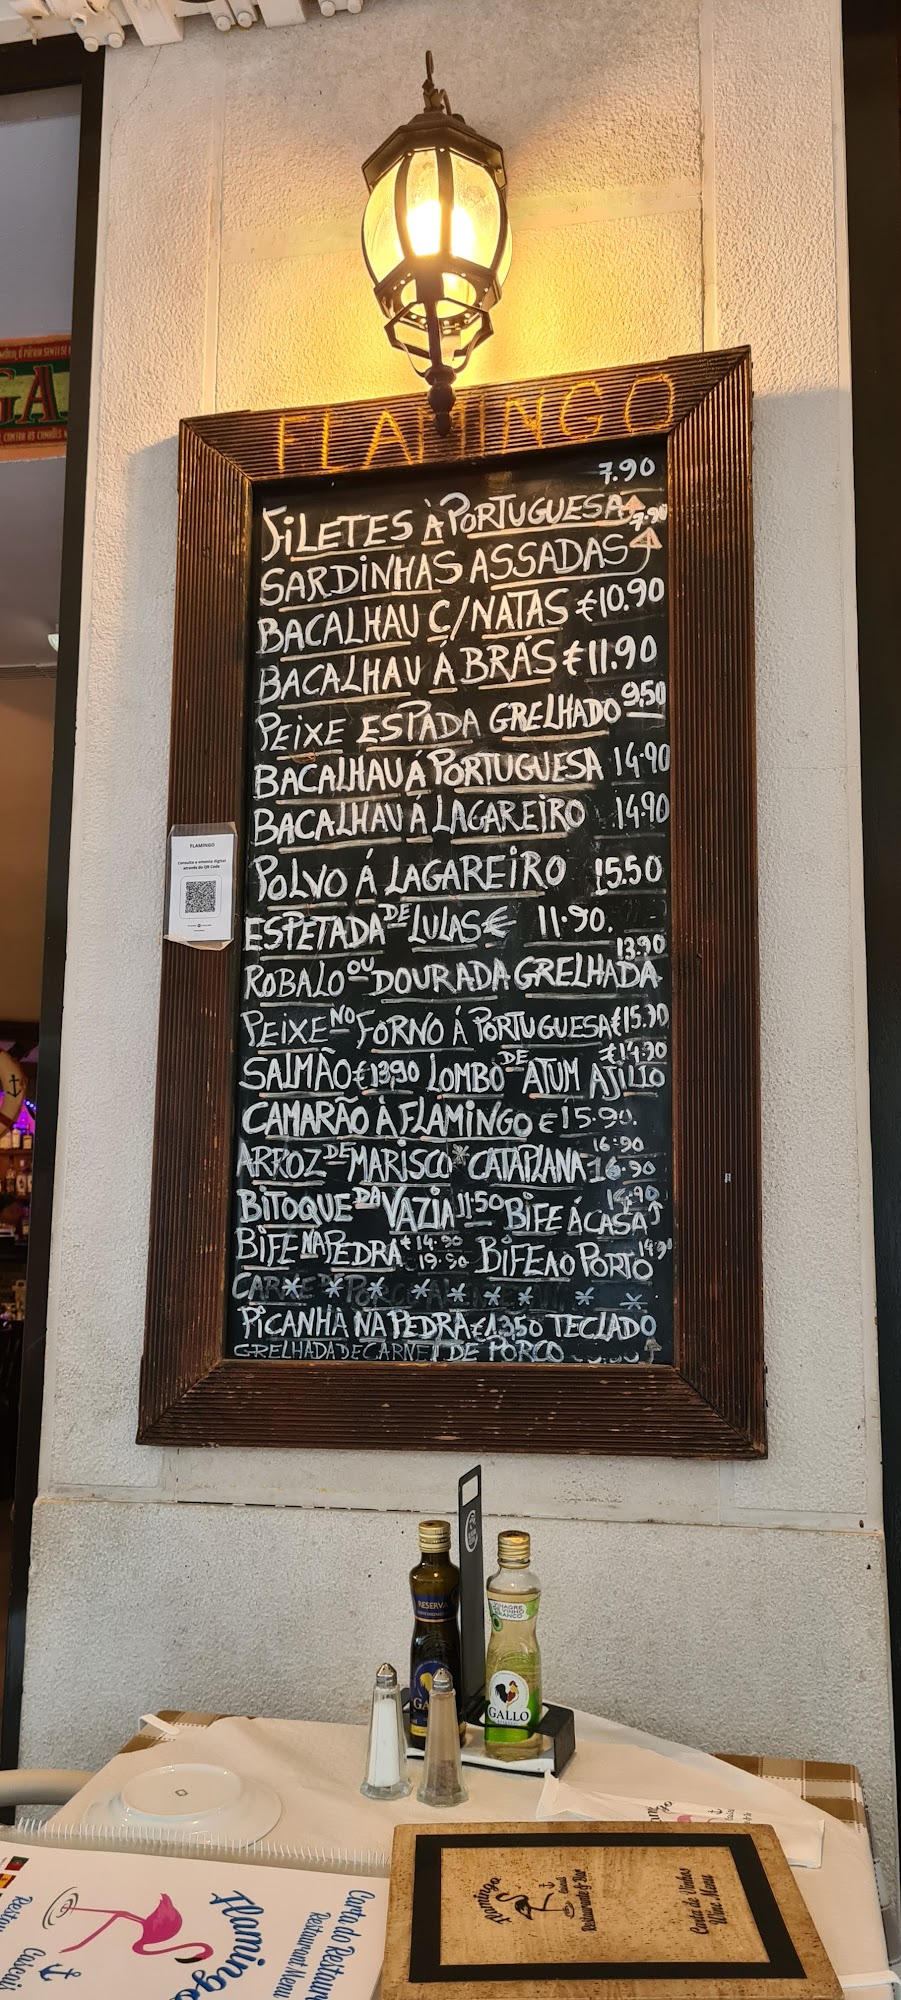 FLAMINGO
7.90
FILETES À PORTUGUESA
7.90
SARDINHAS ASSADAS
BACALHAU C/NATAS €10.90
BACALHAU Á BRÁS €11.90
PEIXE ESPADA GRELHADO 9,50
BACALHAU Á PORTUGUESA 14.90
BACALHAU Á LAGAREIRO 14.90
POLVO Á LAGAREIRO 15.50
ESPETADA DE LULAS € 11.90.
13.90
ROBALO OU DOURADA GRELHADA
PEIXE NO FORNO Á PORTUGUESA €15.90
€14.90
SALMÃO €13,90 LOMBO DE ATUM AJILIO
CAMARÃO À FLAMINGO €15.90.
16.90
ARROZ DE MARISCO * CATAPLANA 16.90
14.90
BITOQUE DA VAZIA 11.50 BIFE Á CASA
BIFE NA PEDRA €14.90 BIFE AO PORTO 14.90
19.90
* * * * * * * *
PICANHA NA PEDRA €13.50 TECLADO
GRELHADA DE CARNE DE PORCO
FLAMINGO
Consulte a ementa digital
através do QR Code
RESERVA
VINAGRE
DE VINHO
BRANCO
GALLO
Flamingo
Cascais
Carta do Restaur
Restaurant Menu
Flamingo
Cascais
Restaurante & Bar
Carta de Vinhos
Wine Menu